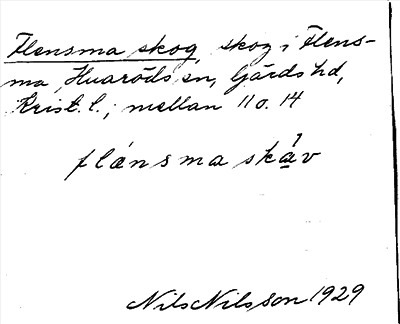 Flensma skog, skog i Flens-
ma, Huaröds sn, Gärds hd,
Krist. l.; mellan 11 o. 14
flænsma skåv
Nils Nilsson 1929